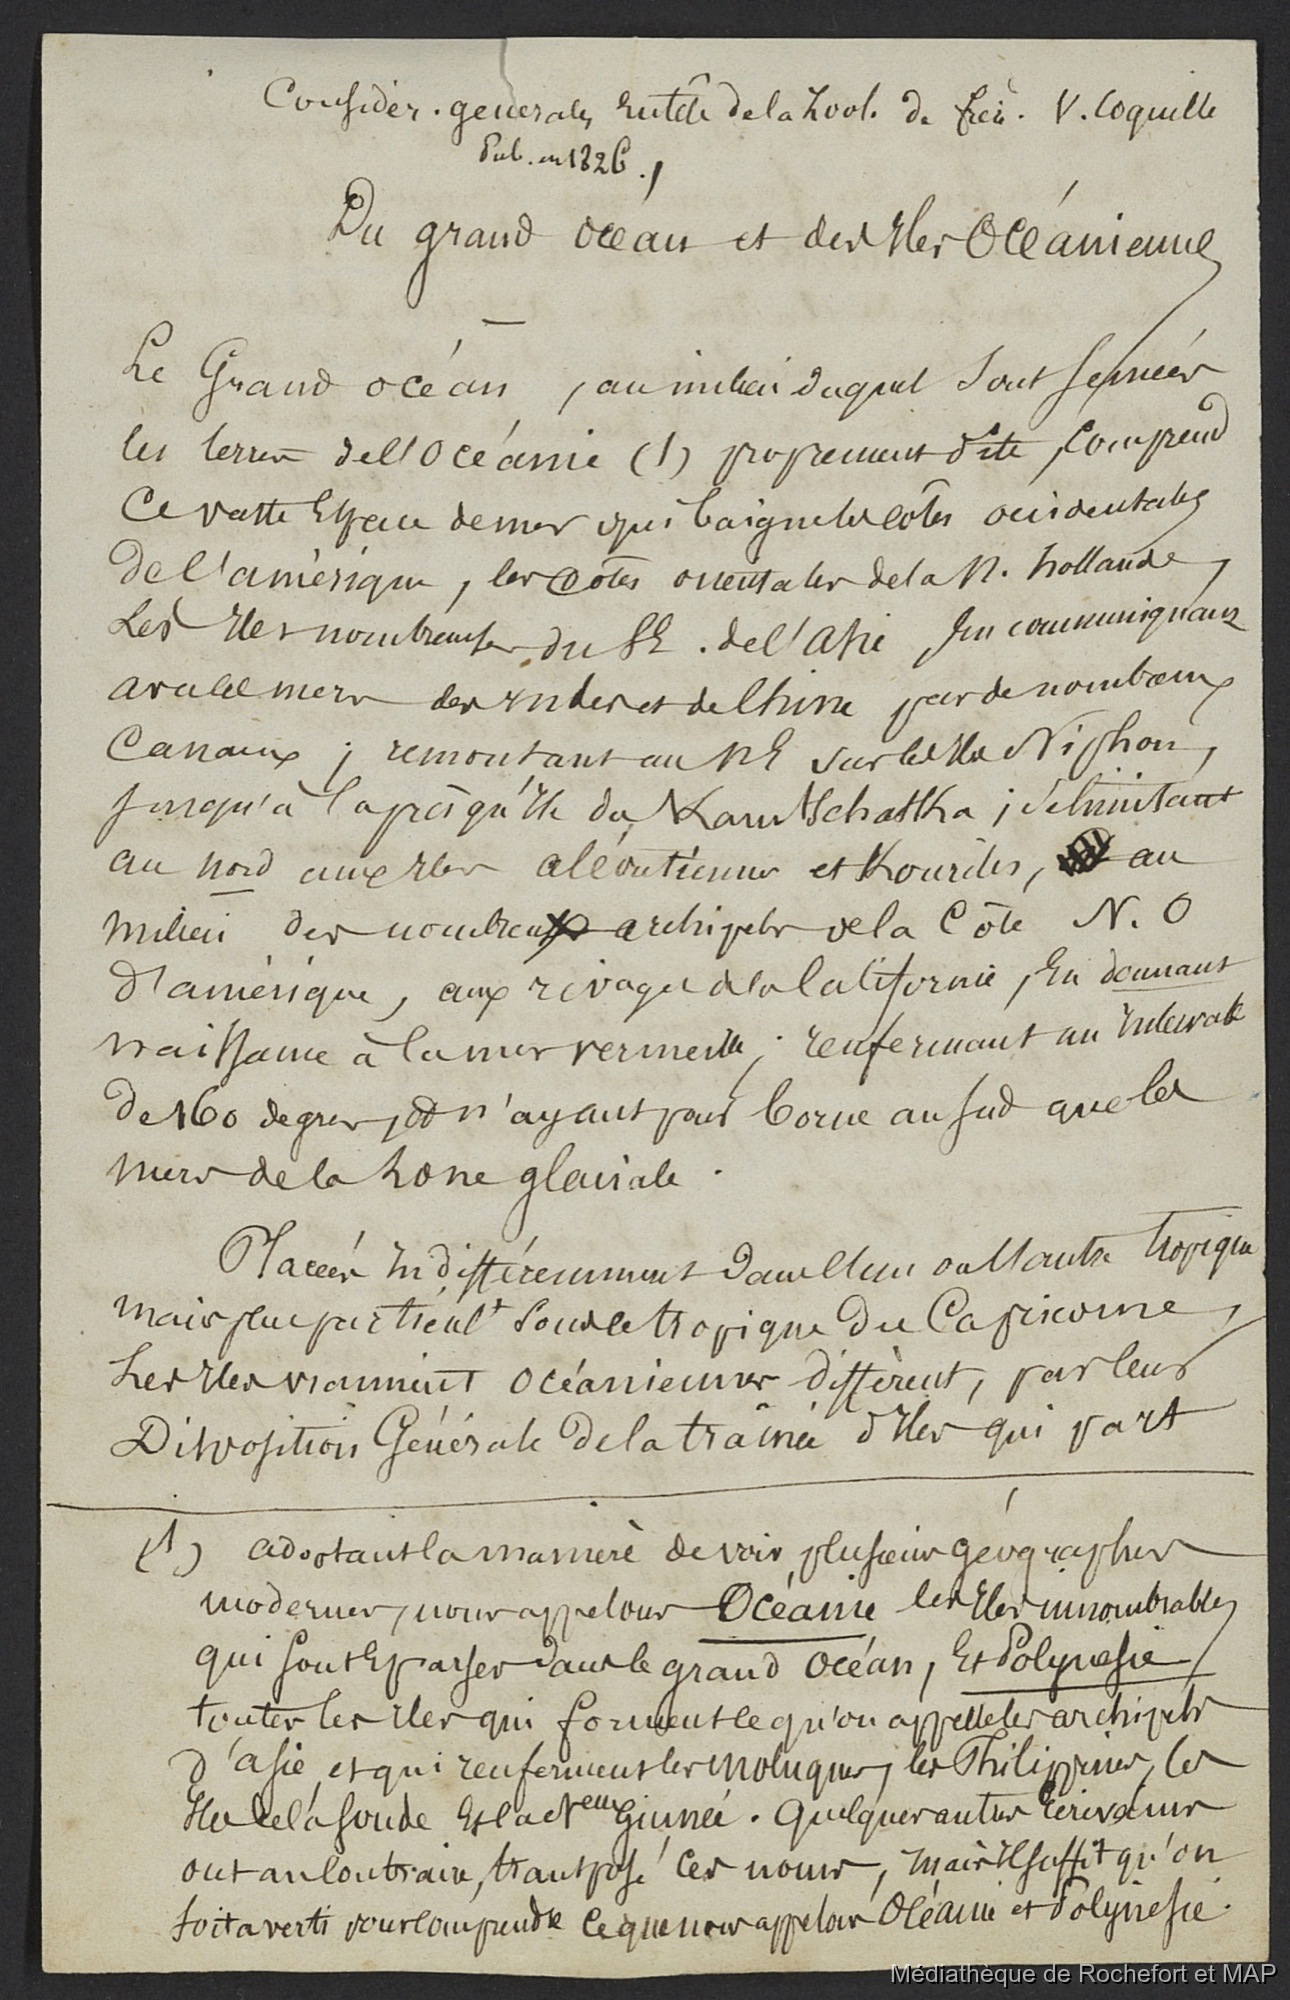 Considér. générales en tête de la Zool. de V. Coquille
Pub. en 1826.
Du grand océan et des Iles Océaniennes
Le Grand océan, au milieu duquel sont semées
les terres de l'Océanie (1) proprement dite, comprend
ce vaste espace de mer qui baigne les côtes occidentales
de l'amérique, les côtes orientales de la N. hollande,
les Iles nombreuses du SE. de l'asie en communiquant
avec les mers des indes et de Chine par de nombreux
Canaux ; remontant au NE sur les Iles Niphon,
jusqu'à la presqu'ile du Kamtschatka ; se limitant
au nord aux Iles aléoutiennes et Kouriles, au
milieu des nombreux archipels de la Côte N. O
d'amérique, aux rivages de la Californie, en donnant
naissance à la mer vermeille ; renfermant un intervale
de 160 degrés, et n'ayant pour borne au sud que les
mers de la Zone glaciale.
Placées indifféremment dans l'un ou l'autre tropique
mais plus particult sous le tropique du Capricorne,
les Iles vraiment océaniennes diffèrent, par leur
Disposition Générale de la traînée d'Iles qui part
(1) adoptant la manière de voir plusieurs géographes
modernes, nous appelons Océanie les Iles innombrables
qui sont éparses dans le grand océan, et Polynésie
toutes les Iles qui forment ce qu'on appelle les archipels
d'asie, et qui renferment les moluques, les Philippines, les
Iles de la sonde et la Neuve Guinée. Quelques autres écrivains
ont au contraire, transposé ces noms, mais il suffit qu'on
soit averti pour comprendre ce que nous appelons Océanie et Polynésie.
Médiathèque de Rochefort et MAP